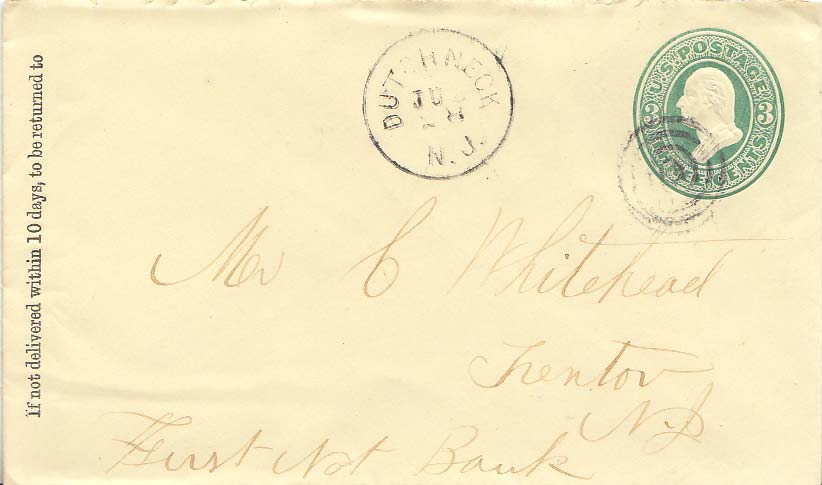 If not delivered within 10 days, to be returned to
DUTCH NECK
N. J.
U.S. POSTAGE
3 3
THREE CENTS
Mr C Whitehead
Trenton
NJ
First Nat Bank